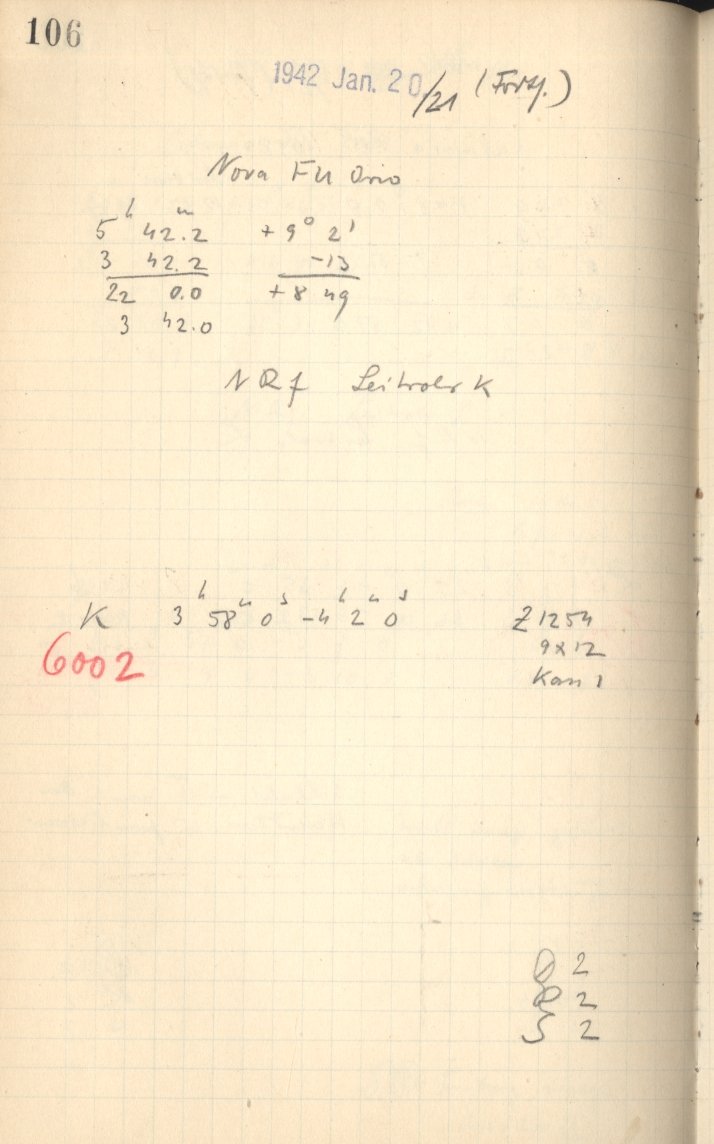 106
1942 Jan. 20/21 (Forts.)
Nova FU Orio
5ʰ 42ᵐ.2 +9° 2'
3 42.2 -13
22 0.0 +8 49
3 42.0
N R f Leitrohr K
K 3ʰ 58ᵐ 0ˢ -4ʰ 2ᵐ 0ˢ Z 1254
6002 9x12
Kass 1
2
R 2
S 2